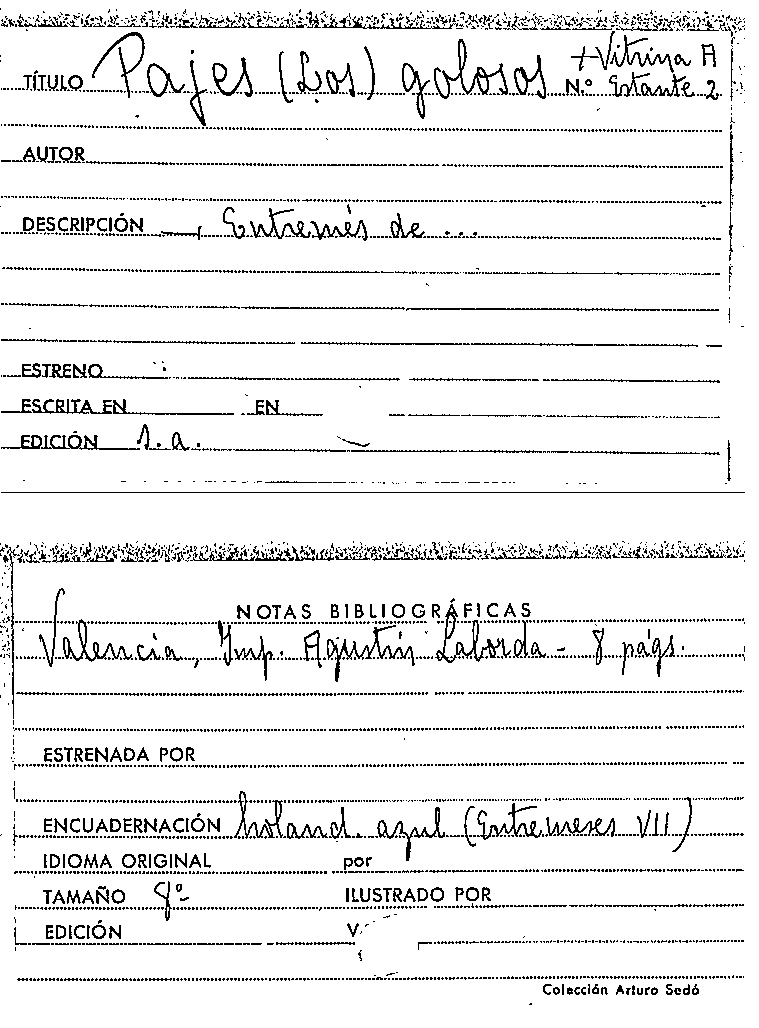 TÍTULO Pajes (Los) golosos + Vitrina A
N.º Estante 2
AUTOR
DESCRIPCIÓN —, Entremés de ...
ESTRENO
ESCRITA EN EN
EDICIÓN s.a.
NOTAS BIBLIOGRÁFICAS
Valencia, Imp. Agustín Laborda - 8 págs.
ESTRENADA POR
ENCUADERNACIÓN holand. azul (Entremeses VII)
IDIOMA ORIGINAL por
TAMAÑO 8º ILUSTRADO POR
EDICIÓN V.
Colección Arturo Sedó